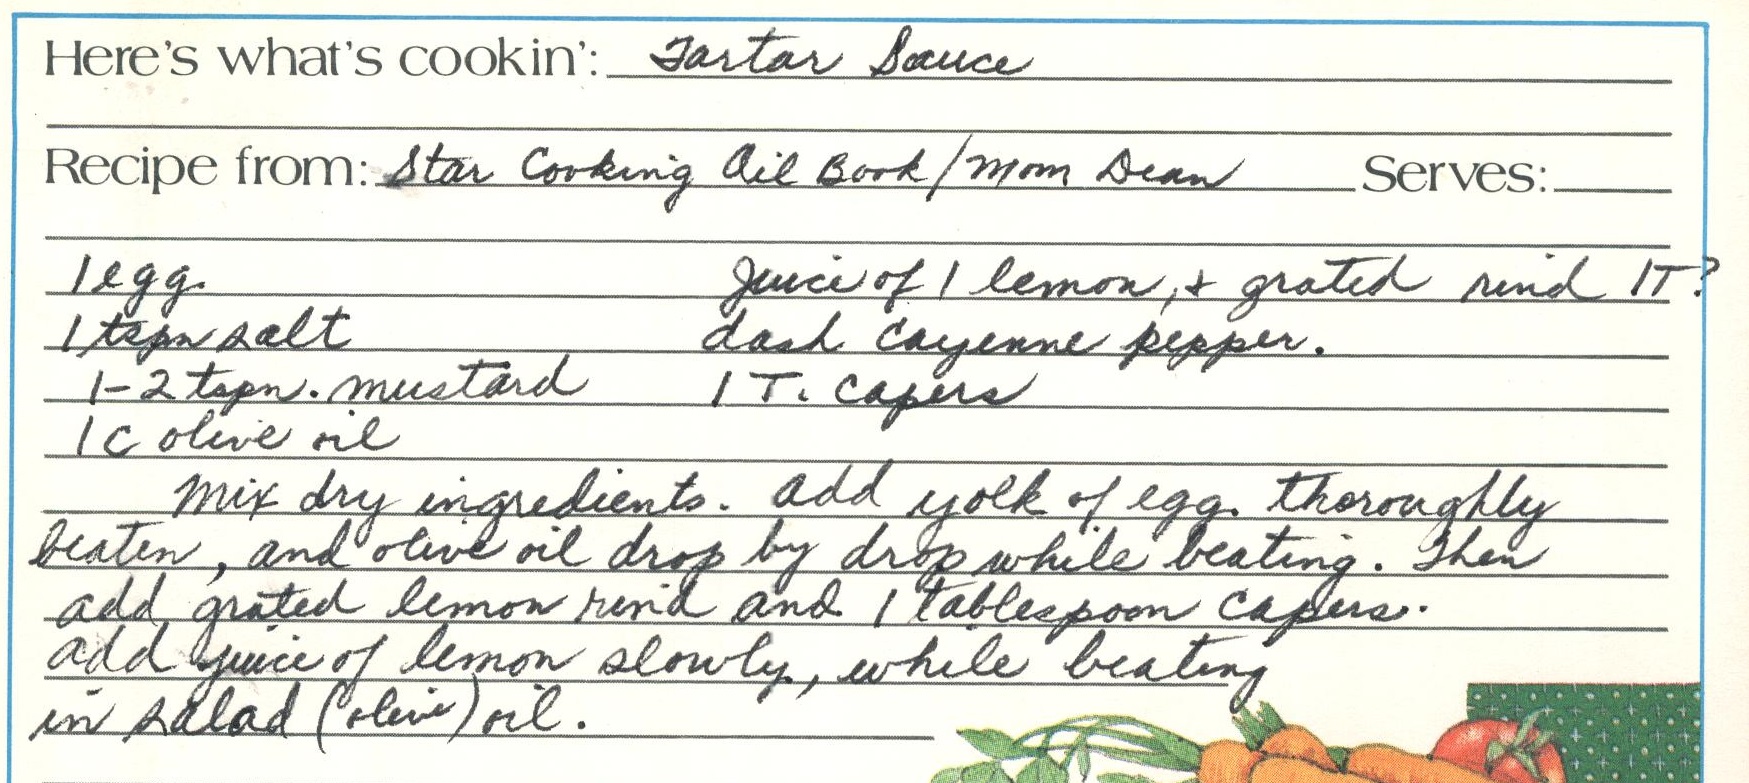 Here's what's cookin': Tartar Sauce
Recipe from: Star Cooking Oil Book/Mom Dean Serves:
1 egg. Juice of 1 lemon, & grated rind 1T?
1 tspn salt dash cayenne pepper.
1-2 tspn. mustard 1 T. capers
1 c olive oil
Mix dry ingredients. add yolk of egg. thoroughly
beaten, and olive oil drop by drop while beating. Then
add grated lemon rind and 1 tablespoon capers.
add juice of lemon slowly, while beating
in salad (olive) oil.